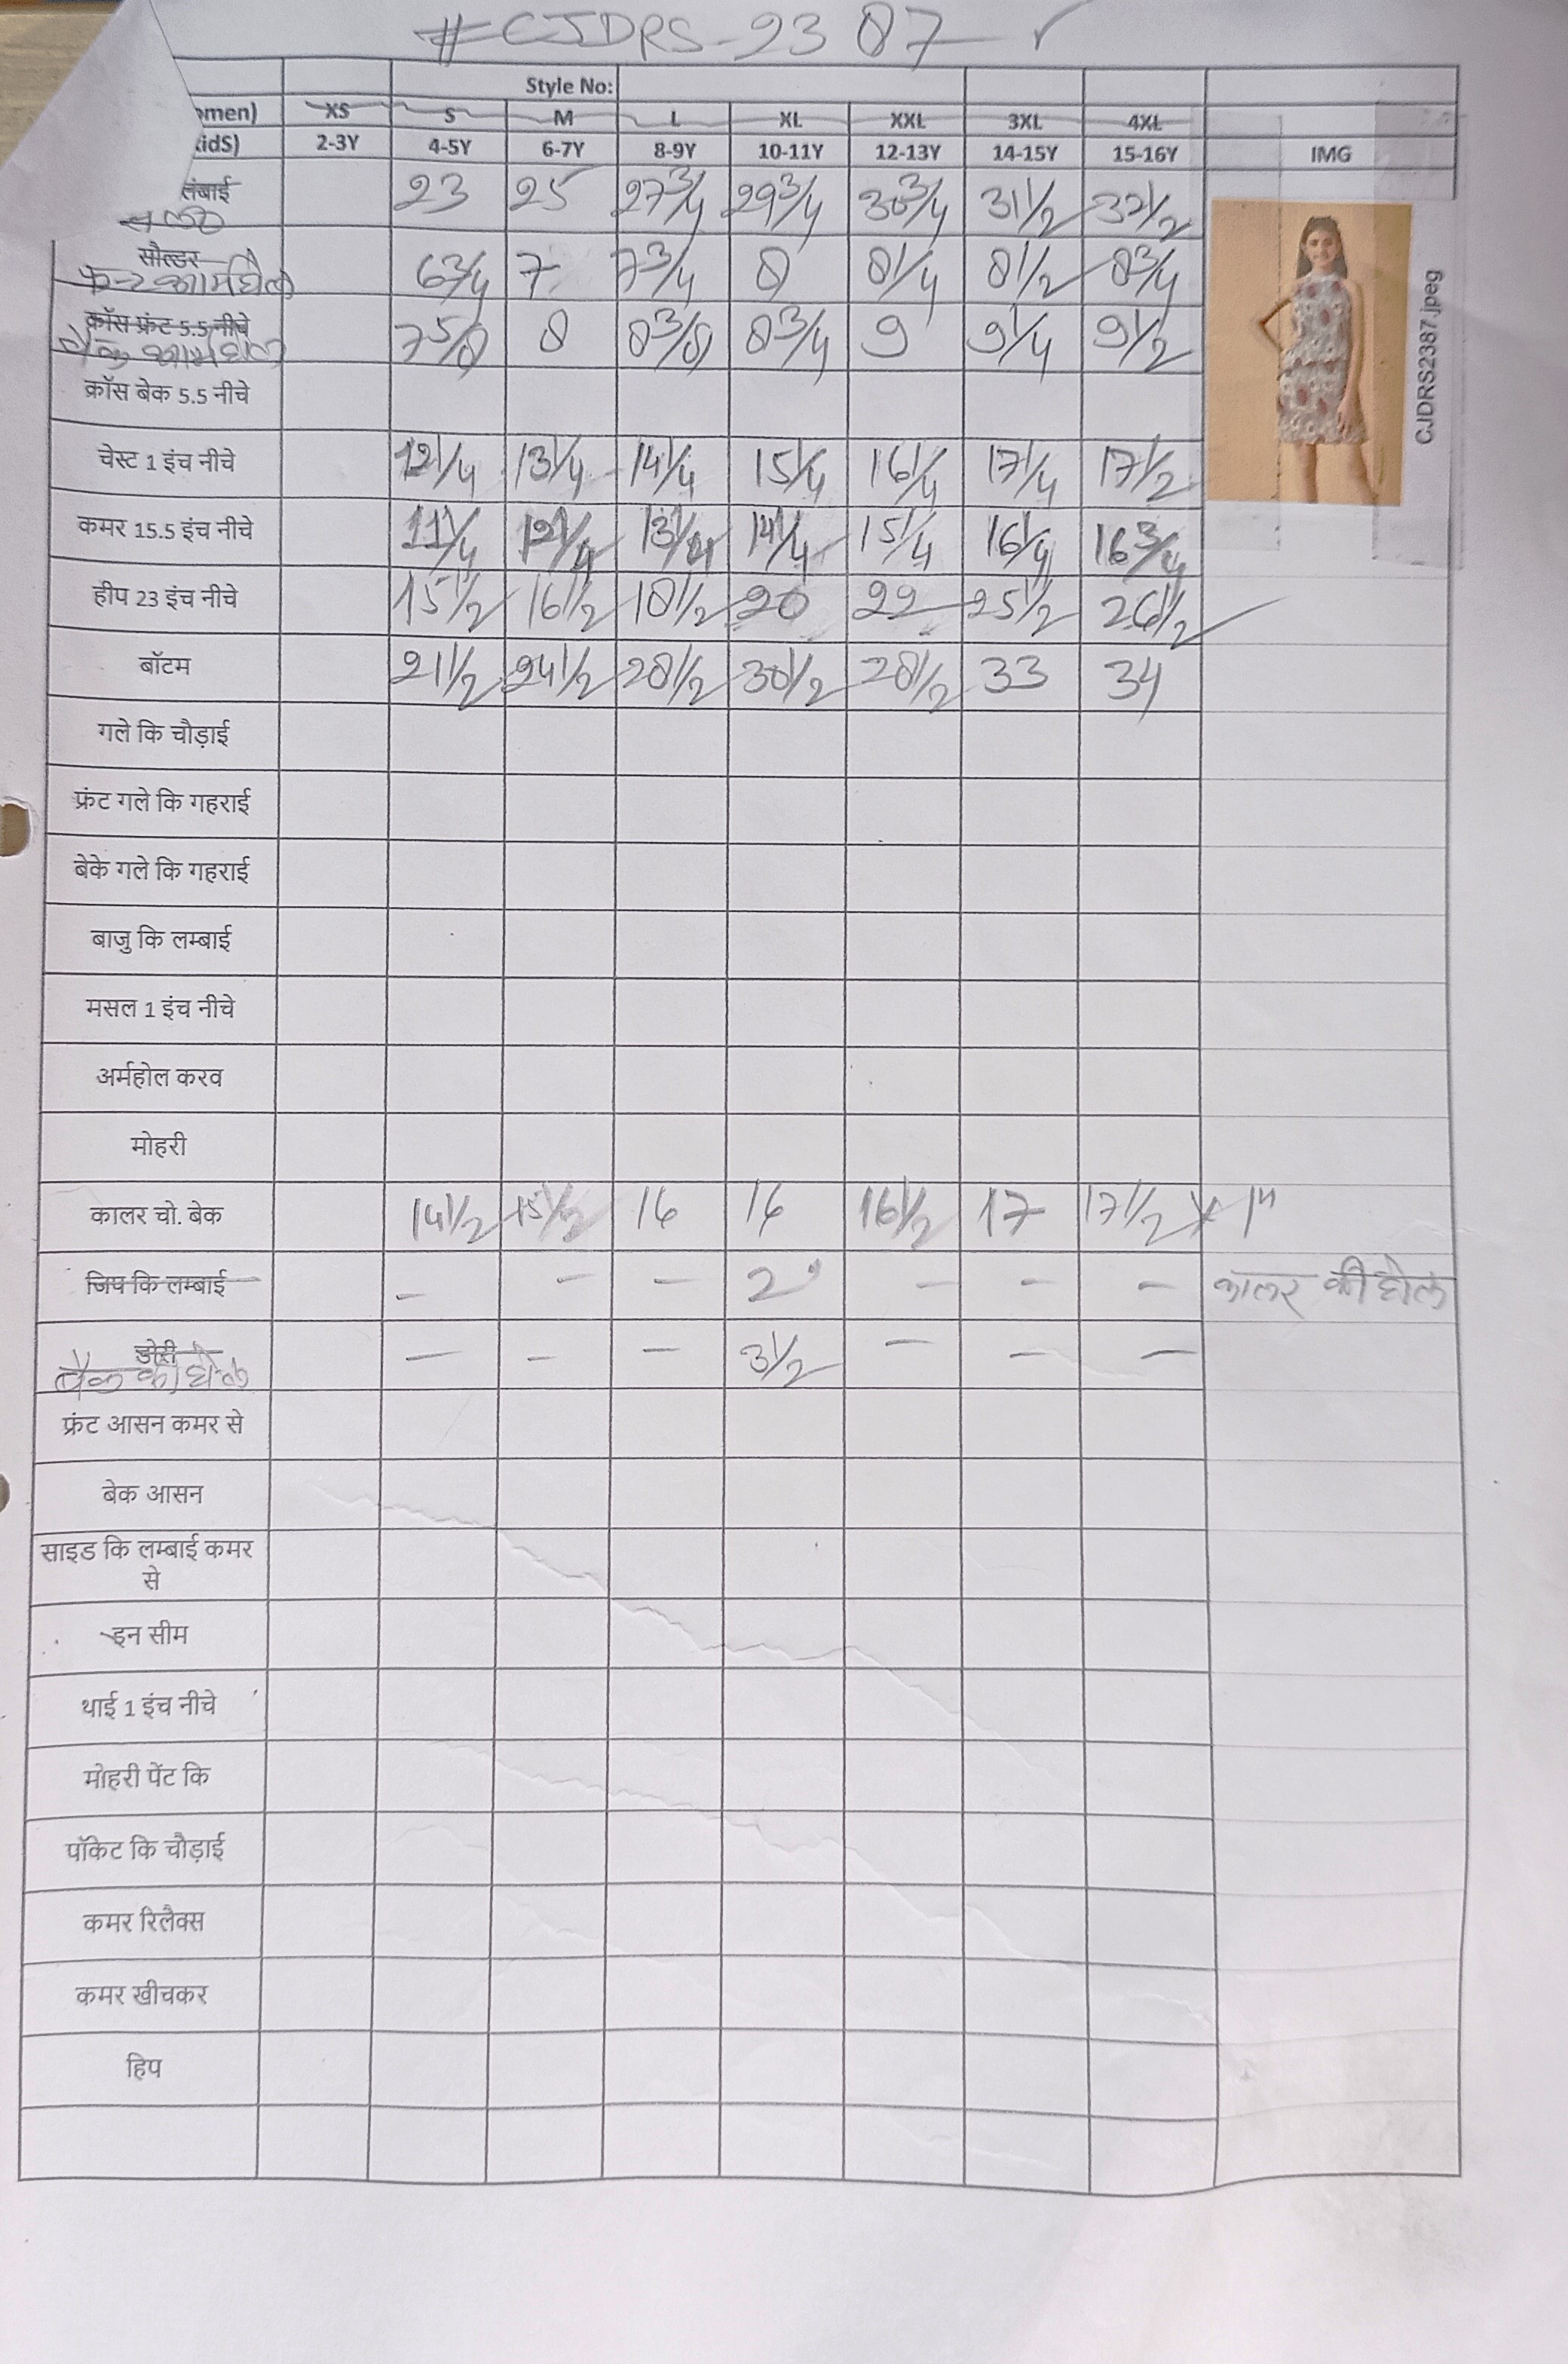 #CJDRS-2387 ✓
Style No:
omen) XS S M L XL XXL 3XL 4XL
kidS) 2-3Y 4-5Y 6-7Y 8-9Y 10-11Y 12-13Y 14-15Y 15-16Y IMG
लंबाई 23 25 27 3/4 29 3/4 30 3/4 31 1/2 32 1/2
सौल्डर 6 3/4 7 7 3/4 8 8 1/4 8 1/2 8 3/4
फ्रन्ट आर्महोल
क्रॉस फ्रंट 5.5 नीचे 7 5/8 8 8 3/8 8 3/4 9 9 1/4 9 1/2
बैक आर्महोल
CJDRS2387.jpeg
क्रॉस बेक 5.5 नीचे
चेस्ट 1 इंच नीचे 12 1/4 13 1/4 14 1/4 15 1/4 16 1/4 17 1/4 17 1/2
कमर 15.5 इंच नीचे 11 1/4 12 1/4 13 1/4 14 1/4 15 1/4 16 1/4 16 3/4
हीप 23 इंच नीचे 15 1/2 16 1/2 18 1/2 20 22 25 1/2 26 1/2
बॉटम 21 1/2 24 1/2 28 1/2 30 1/2 28 1/2 33 34
गले कि चौड़ाई
फ्रंट गले कि गहराई
बेके गले कि गहराई
बाजु कि लम्बाई
मसल 1 इंच नीचे
अर्महोल करव
मोहरी
कालर चो. बेक 14 1/2 15 1/2 16 16 16 1/2 17 17 1/2 x 1"
जिप कि लम्बाई - - - 2" - - - कालर की होल
डोरी - - - 3 1/2 - - -
बैक का होल
फ्रंट आसन कमर से
बेक आसन
साइड कि लम्बाई कमर
से
इन सीम
थाई 1 इंच नीचे
मोहरी पेंट कि
पॉकेट कि चौड़ाई
कमर रिलैक्स
कमर खीचकर
हिप